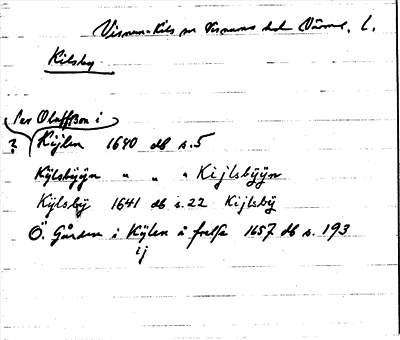 Visnum-Kils sn Visnums hd Värml. l.
Kilsby
Per Olaffson i
? Kijlen 1640 db s. 5
Kÿlsbÿÿn " " " Kijlsbÿÿn
Kÿlsbÿ 1641 db s. 22 Kijlsbÿ
Ö. Gården i Kÿlen å frelse 1657 db s. 193
ij